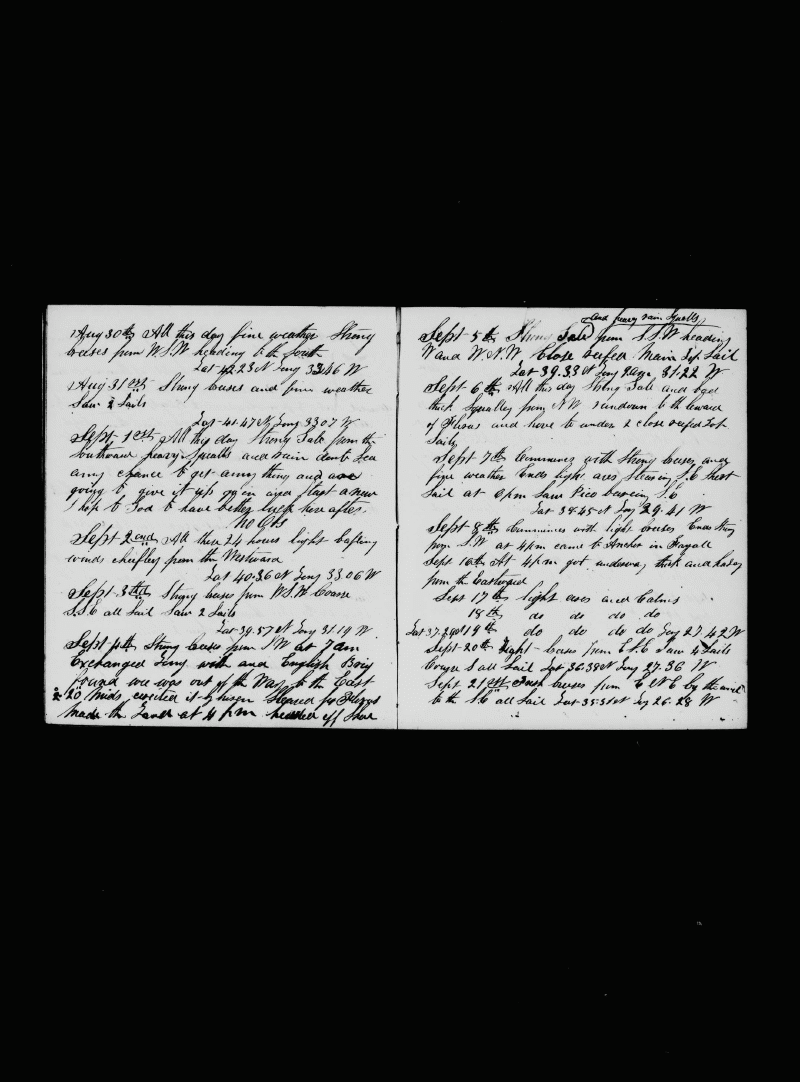 Aug 30th All this day fine weather Strong
breses from W.S.W heading to the South
Lat 42.23 N Long 33.46 W
Aug 31est Strong breses and fine weather
Saw 2 Sails
Lat 41.47 N Long 33 07 W
Sept 1est All this day Strong Gale from the
Southward heavy Squalls and rain dont See
any chance to get anny thing and are
going to give it up again and Start anew
I hope to God to have better luck here after
Sept 2ond All these 24 hours light bafling
winds chiefley from the Westward
Lat 40.36 N Long 33 06 W
Sept 3th Strong breses from W.S.W Coarse
S.S.E all Sail Saw 2 Sails
Lat 39.57 N Long 31.19 W
Sept 4th Strong breses from SW at 7 am
Exchanged Long with and English
found we was out of the Way to the East
20 it by him Steared for Flores
made the Land at 4 pm headed off Shore
and heavy rain Squalls
Sept 5th Strong Gale from S.S.W heading
W and W.N.W Close reefed Main Top Sail
Lat 39.33 N Long 31.22 W
Sept 6th All this day Strong Gale and
thick Squalley from N.W rundown to the leward
of Flores and hove to under 2 close reefed Top
Sails
Sept 7th Commences with Strong breses and
fine weather Ends light airs Stearing S.E Short
Sail at 6 pm Saw Pico bearing S.E
Lat 38.45 N Long 29.41 W
Sept 8th Commences with light breses Ends Strong
from S.W at 4 pm came to Anchor in Fayall
Sept 16th At 4 pm got underway thick and hasey
from the Eastward
Sept 17th light aires and Calms
18th do do do do
Lat 37.29 N 19th do do do do Long 27 42 W
Sept 20th Light breses from E.S.E Saw 4 Sails
Course S all Sail Lat 36.38 N Long 27.36 W
Sept 21est Fresh breses from E.N.E by the wind
to the S.E all Sail Lat 35.31 N Long 26.28 W